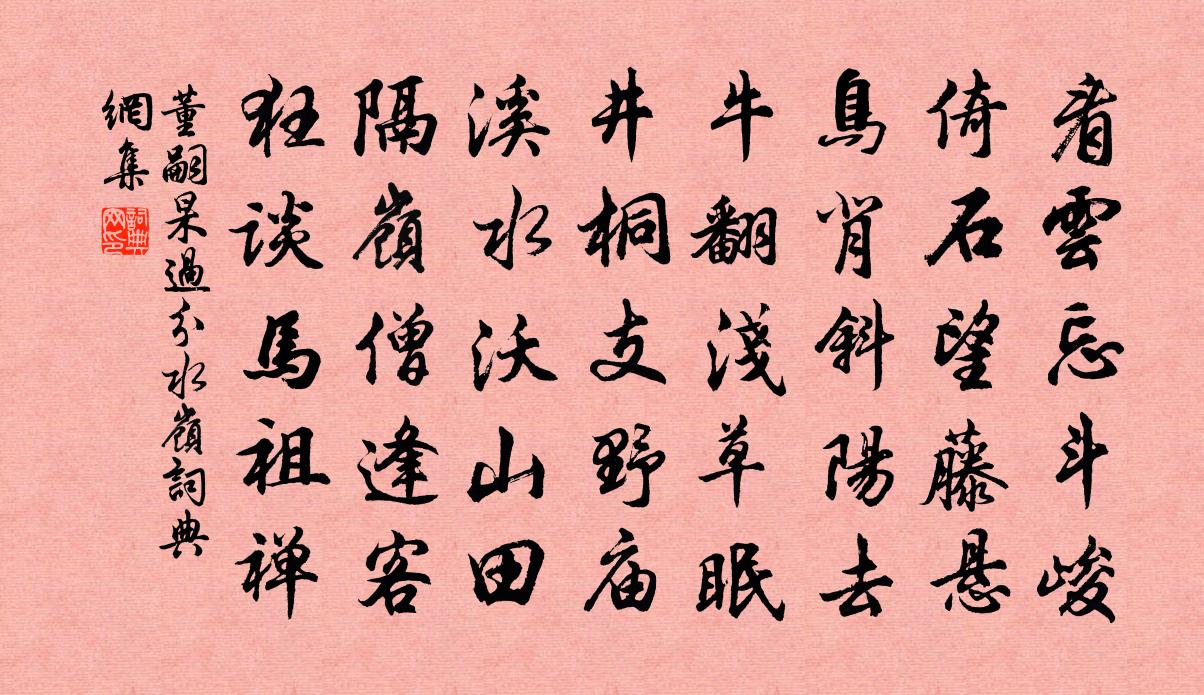 看雲忘斗峻
倚石望藤悬
鳥肖斜陽去
牛翻淺草眠
井桐支野庙
溪水沃山田
隔嶺僧逢客
狂谈馬祖禅
董嗣杲過分水嶺詞典
網集
詞典網印